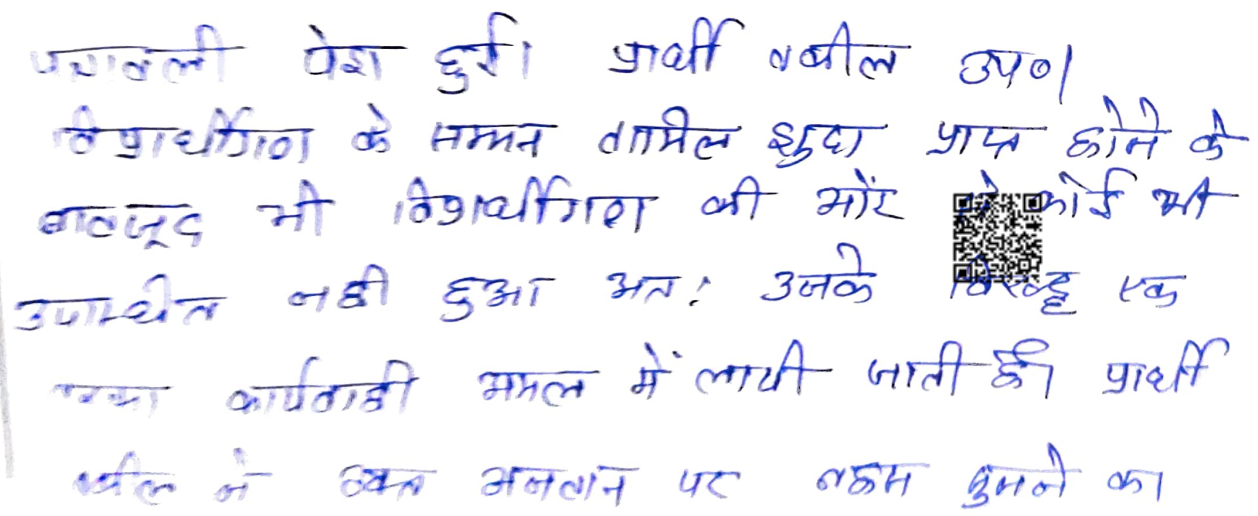 पत्रावली पेश हुई। प्रार्थी वकील उप०।
विप्रार्थीगण के सम्मन तामील शुदा प्राप्त होने के
बावजूद भी विप्रार्थीगण की ओर से कोई भी
उपस्थित नही हुआ अतः उनके विरुद्ध एक
तरफा कार्यवाही अमल में लायी जाती है। प्रार्थी
वकील ने पर बहस सुनने का